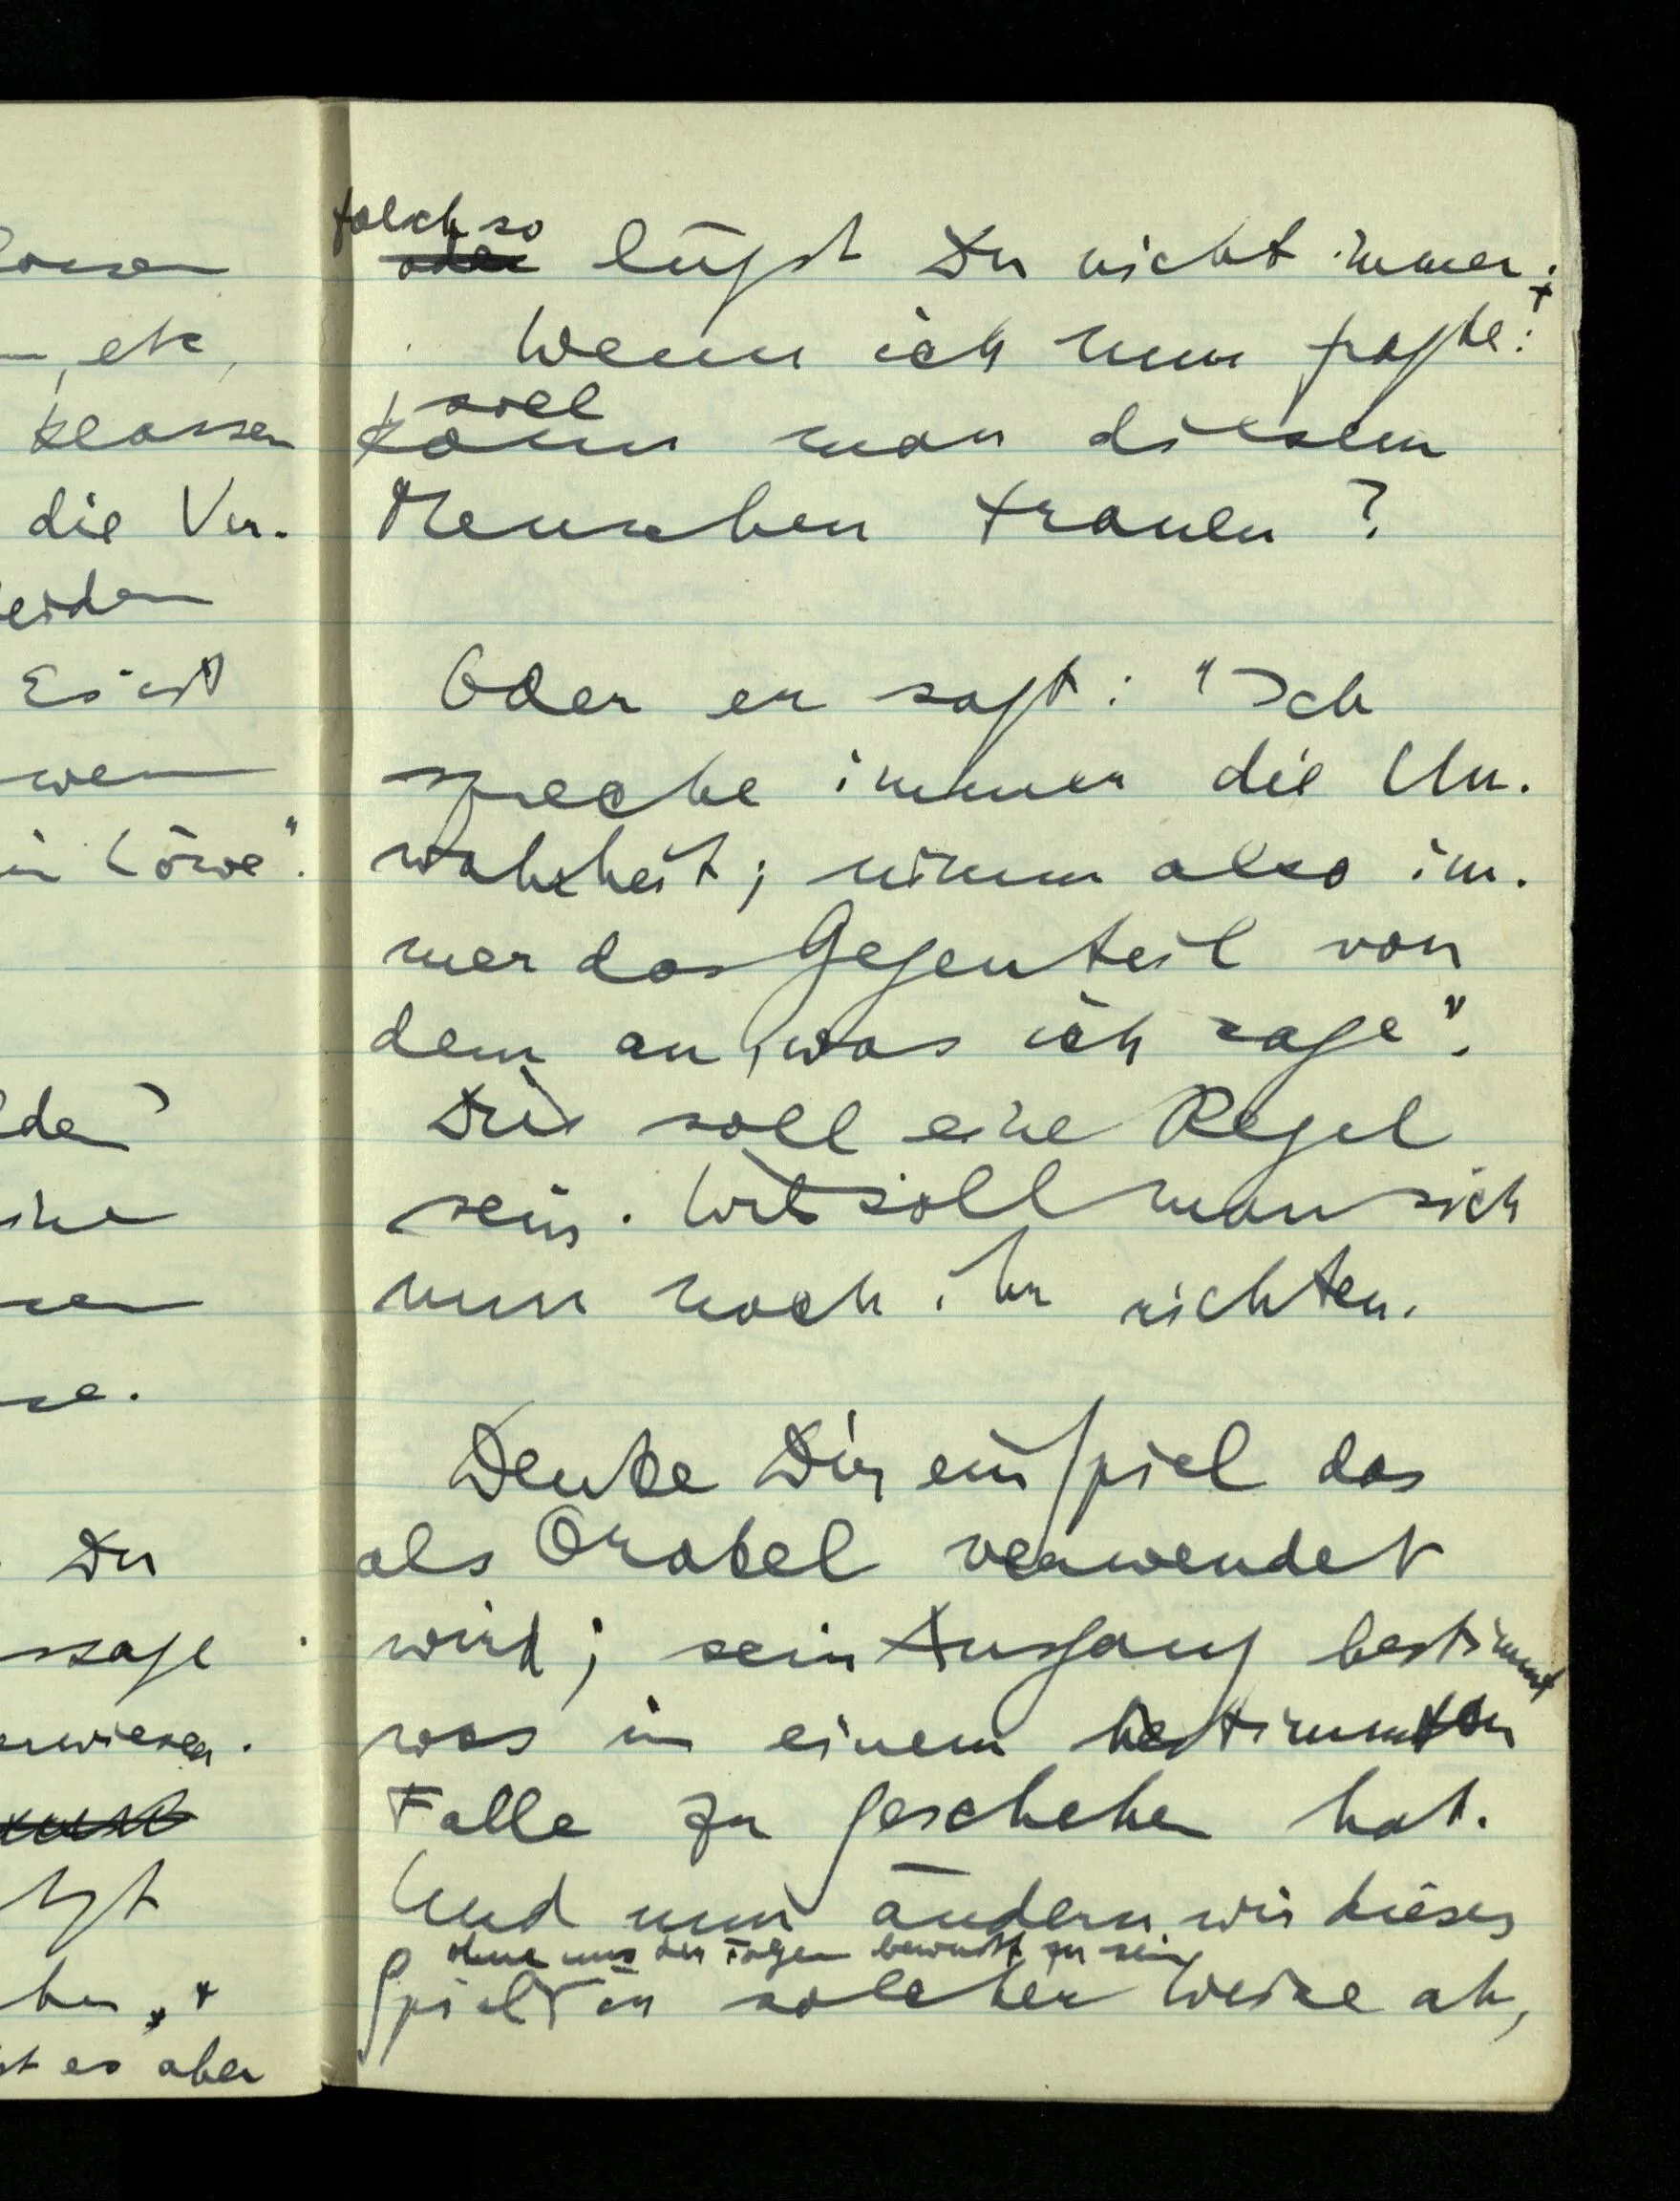 lassen
, etc,
Klassen
die Ver-
Es ist
wenn
in Löwe".
Du
sage
erwiesen.
st es aber
falsch so
oder lügst Du nicht immer.
Wenn ich nun fragte:
soll
kann man diesem
Menschen trauen?
Oder er sagt: "Ich
spreche immer die Un-
wahrheit; nimm also im-
mer das Gegenteil von
dem an, was ich sage".
Dies soll eine Regel
sein. Wie soll man sich
nun nach ihr richten.
Denke Dir ein Spiel das
als Orakel verwendet
wird; sein Ausgang bestimmt
was in einem bestimmten
Falle zu geschehen hat.
Und nun ändern wir dieses
ohne uns der Folgen bewußt zu sein
Spiel in solcher Weise ab,